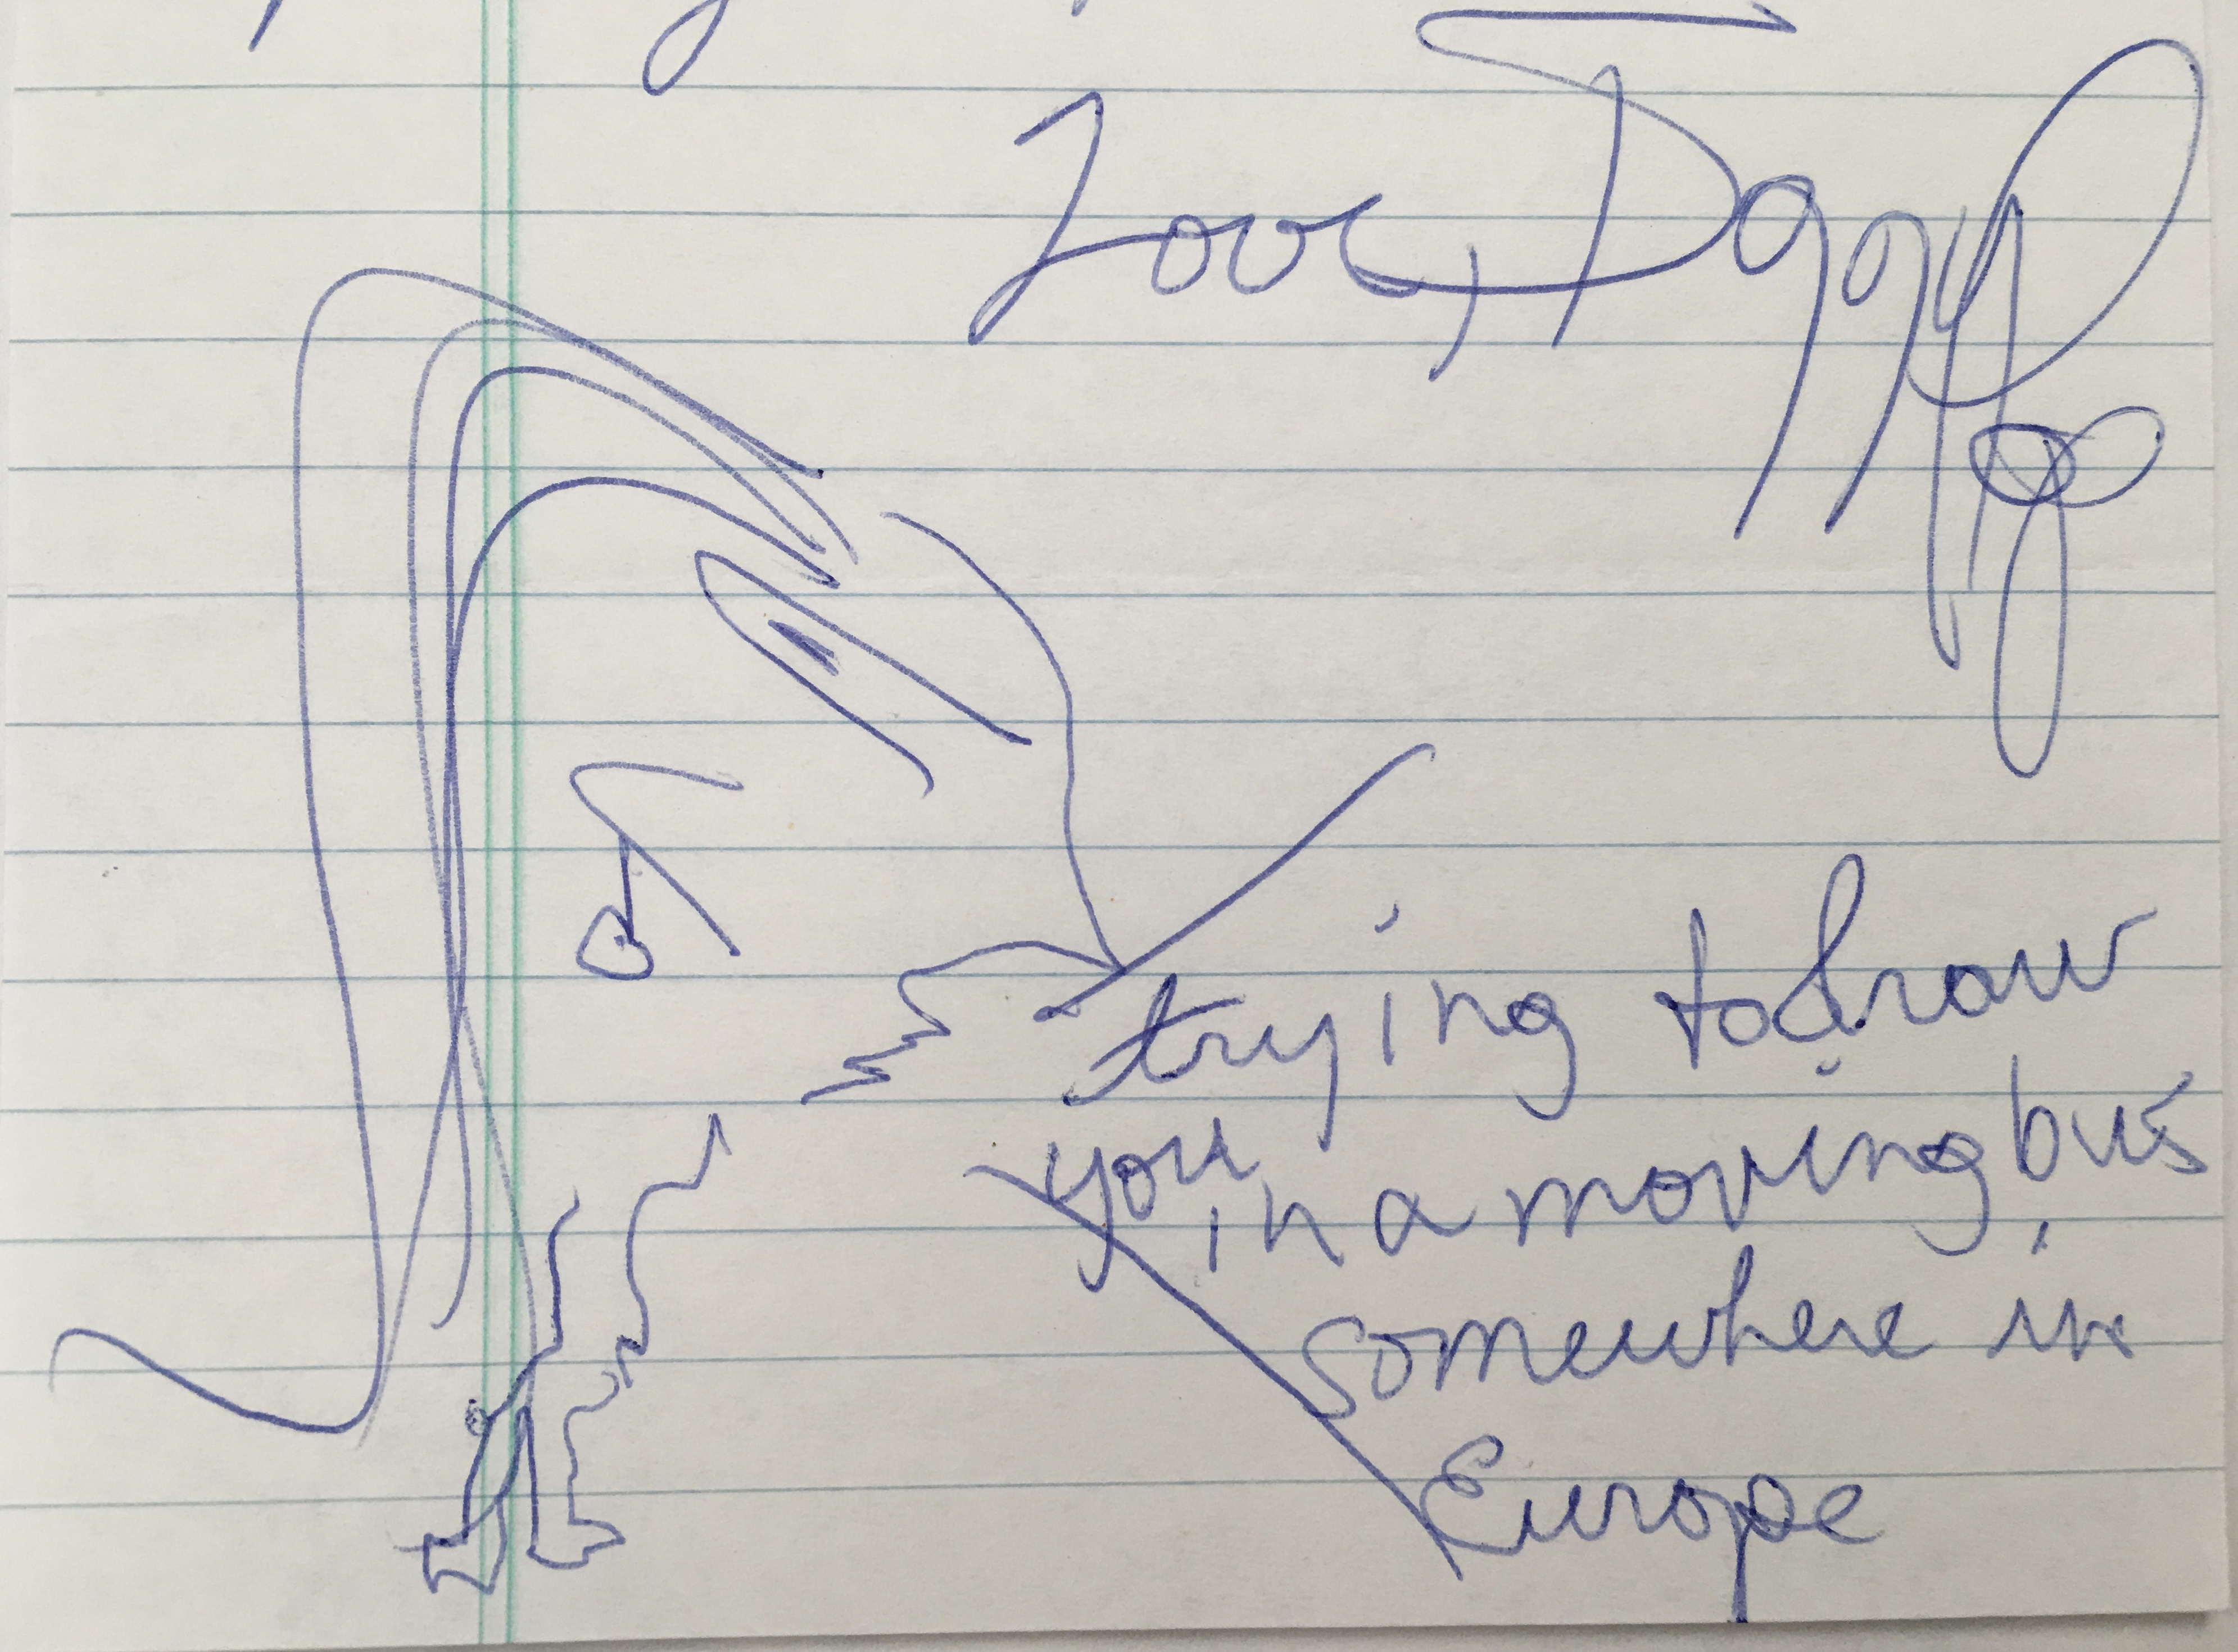 Love,
trying to draw
you in a moving bus
somewhere in
Europe